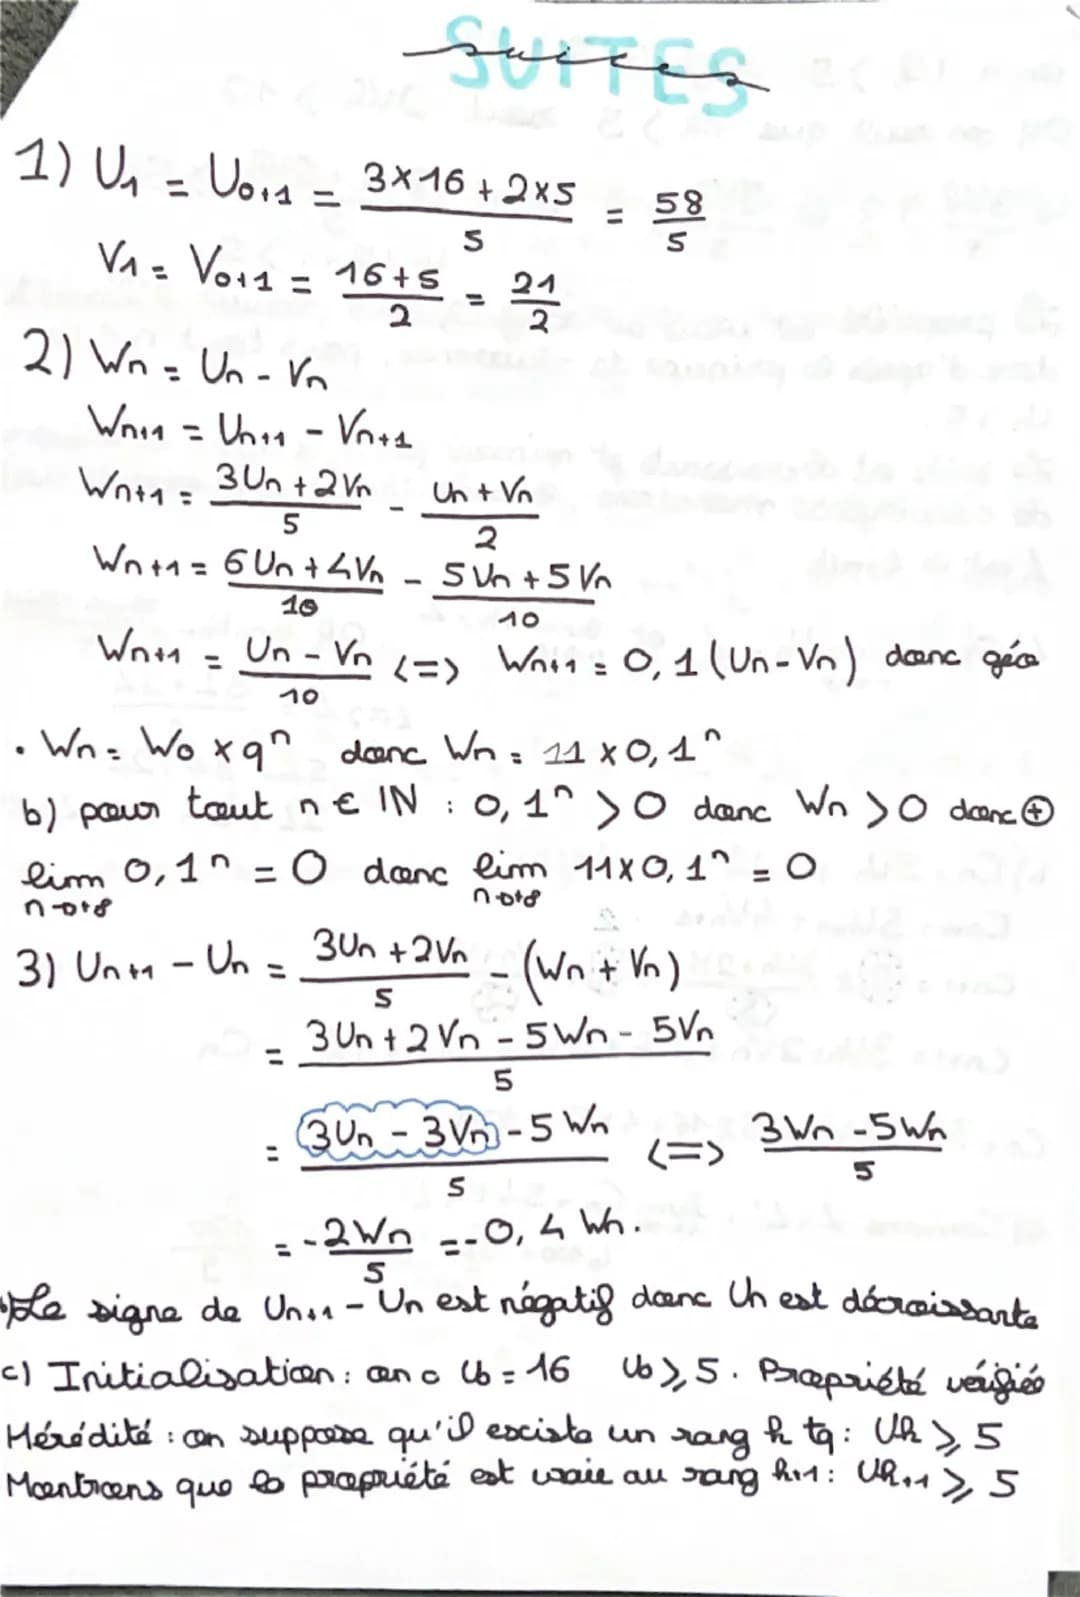 SUITES
suites
1) U₁ = U₀₊₁ = (3×16 + 2×5)/5 = 58/5
V₁ = V₀₊₁ = (16+5)/2 = 21/2
2) Wn = Un - Vn
Wn+1 = Un+1 - Vn+1
Wn+1 = (3Un + 2Vn)/5 - (Un + Vn)/2
Wn+1 = (6Un + 4Vn)/10 - (5Un + 5Vn)/10
Wn+1 = (Un - Vn)/10 <=> Wn+1 = 0,1(Un - Vn) donc géo
• Wn = W₀ × qⁿ donc Wn = 11 × 0,1ⁿ
b) pour tout n ∈ IN : 0,1ⁿ > 0 donc Wn > 0 donc ⊕
lim n→+∞ 0,1ⁿ = 0 donc lim n→+∞ 11×0,1ⁿ = 0
3) Un+1 - Un = (3Un + 2Vn)/5 - (Wn + Vn)
= (3Un + 2Vn - 5Wn - 5Vn)/5
= (3Un - 3Vn - 5Wn)/5 <=> (3Wn - 5Wn)/5
= -2Wn/5 = -0,4 Wn.
b) Le signe de Un+1 - Un est négatif donc Un est décroissante
c) Initialisation : on a U₀ = 16 U₀ ⩾ 5. Propriété vérifiée
Hérédité : on suppose qu'il existe un rang k tq : Uk ⩾ 5
Montrons que la propriété est vraie au rang k+1 : Uk+1 ⩾ 5